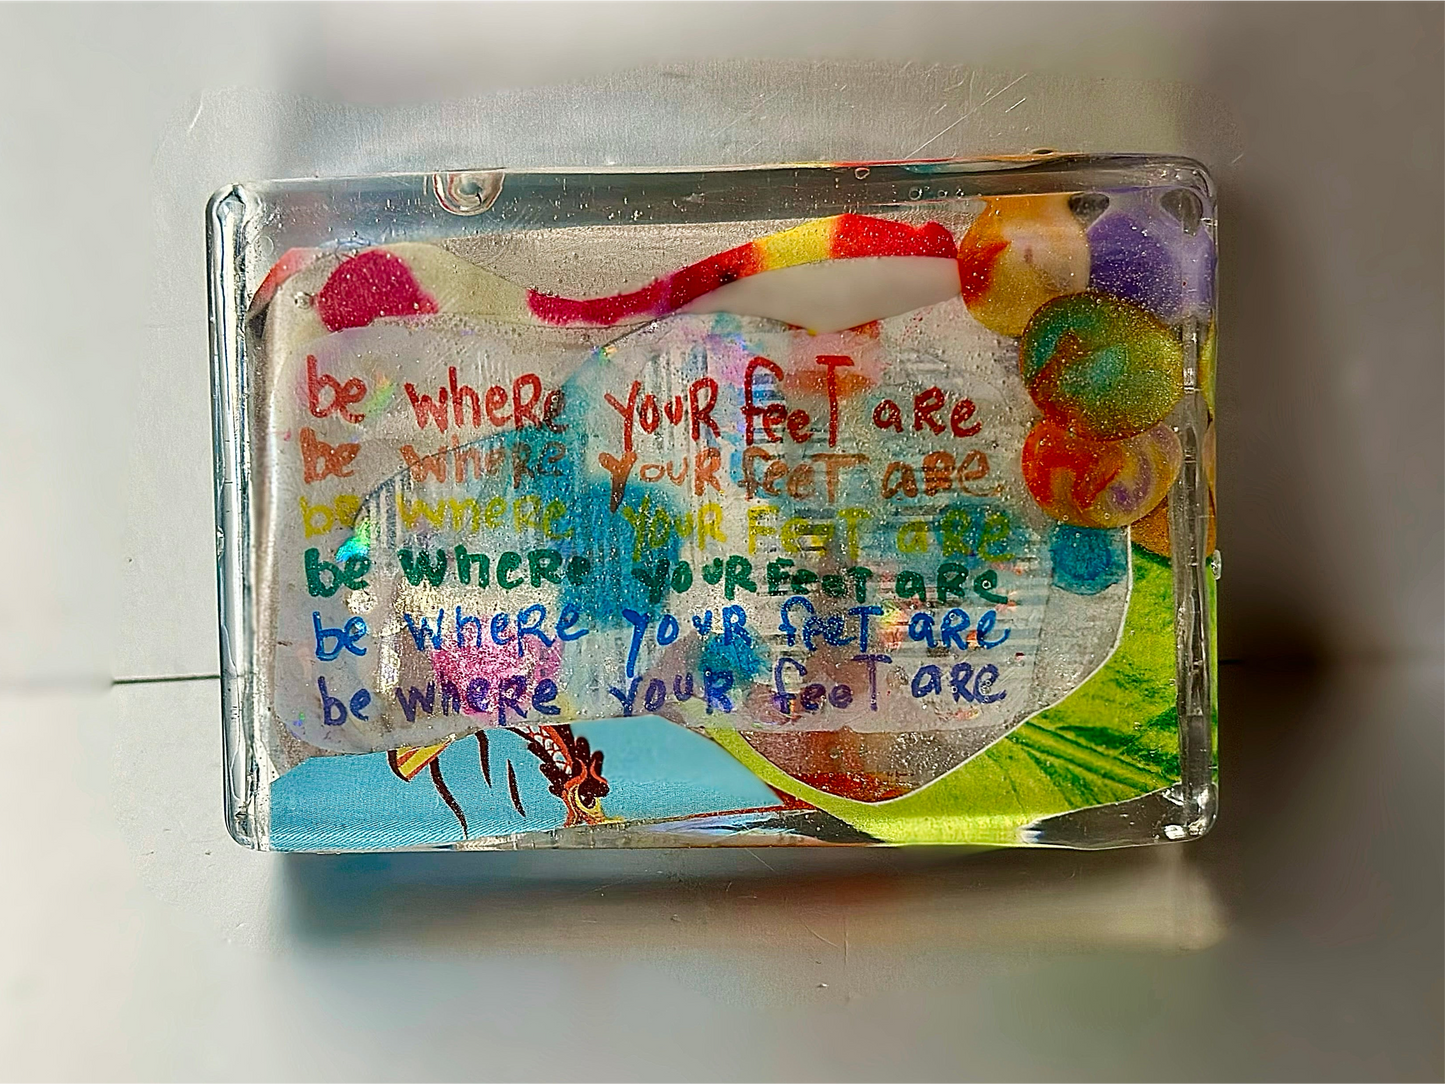 be wheRe youR feeT aRe
be wheRe youR feeT aRe
be wheRe youR FeeT aRe
be wheRe youR FeeT aRe
be wheRe youR feeT aRe
be wheRe youR feeT aRe